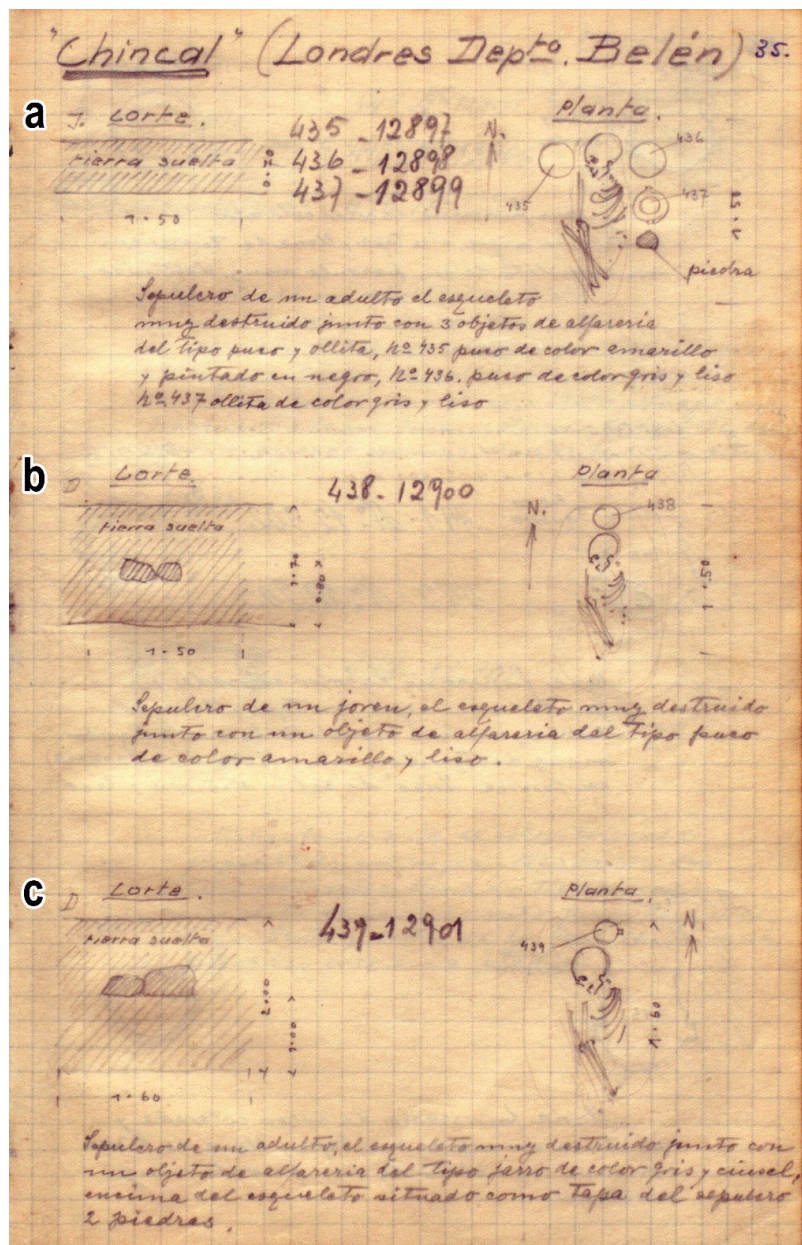 "Chincal" (Londres Depto. Belén) 35.
a
Corte.
Planta.
435 - 12897
436 - 12898
437 - 12899
N.
tierra suelta
1.50
435
436
437
piedra
Sepulcro de un adulto el esqueleto
muy destruido junto con 3 objetos de alfareria
del tipo puco y ollita, Nº 435 puco de color amarillo
y pintado en negro, Nº 436. puco de color gris y liso
Nº 437 ollita de color gris y liso
b
D
Corte
Planta
438 - 12900
438
N.
tierra suelta
1.70
0.80
1.50
1.50
Sepulcro de un joven, el esqueleto muy destruido
junto con un objeto de alfareria del tipo puco
de color amarillo y liso.
c
D
Corte.
Planta.
439 - 12901
439
N.
tierra suelta
2.00
1.00
1.60
1.60
Sepulcro de un adulto, el esqueleto muy destruido junto con
un objeto de alfareria del tipo jarro de color gris y cincel,
encima del esqueleto situado como tapa del sepulcro
2 piedras.